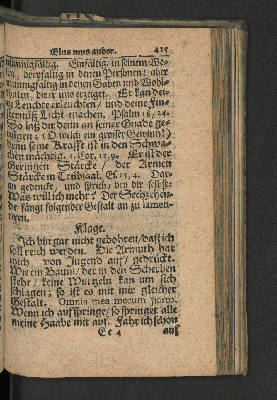 Eins ums ander. 415
mannigfältig. Einfältig in seinem We-
sen, dreyfaltig in denen Personen; aber
mannigfaltig in denen Gaben und Wohl-
thaten, die er uns erzeiget. Er kan dei-
ne Leuchte erleuchten / und deine Fin-
sterniß Licht machen. Psalm 18, 24.
So laß dir denn an seiner Gnade ge-
nügen: (O welch ein grosser Gewinn!)
Denn seine Krafft ist in den Schwa-
chen mächtig. 2. Cor. 12, 9. Er ist der
Geringsten Stärcke / der Armen
Stärcke in Trübsaal. Es. 25, 4. Dar-
an gedencke, und sprich bey dir selbst:
Was will ich mehr? Der Sechzehen-
de fängt folgender Gestalt an zu lamen-
tiren.
Klage.
Ich bin gar nicht gebohren / daß ich
soll reich werden. Die Armuth hat
mich von Jugend auf / gedrückt.
Wie ein Baum / der in den Scherben
steht / keine Wurtzeln kan um sich
schlagen; so ist es mit mir gleicher
Gestalt. Omnia mea mecum porto.
Wenn ich aufspringe / so springet alle
meine Haabe mit auf. Fahr ich schon
Ee 4 auf